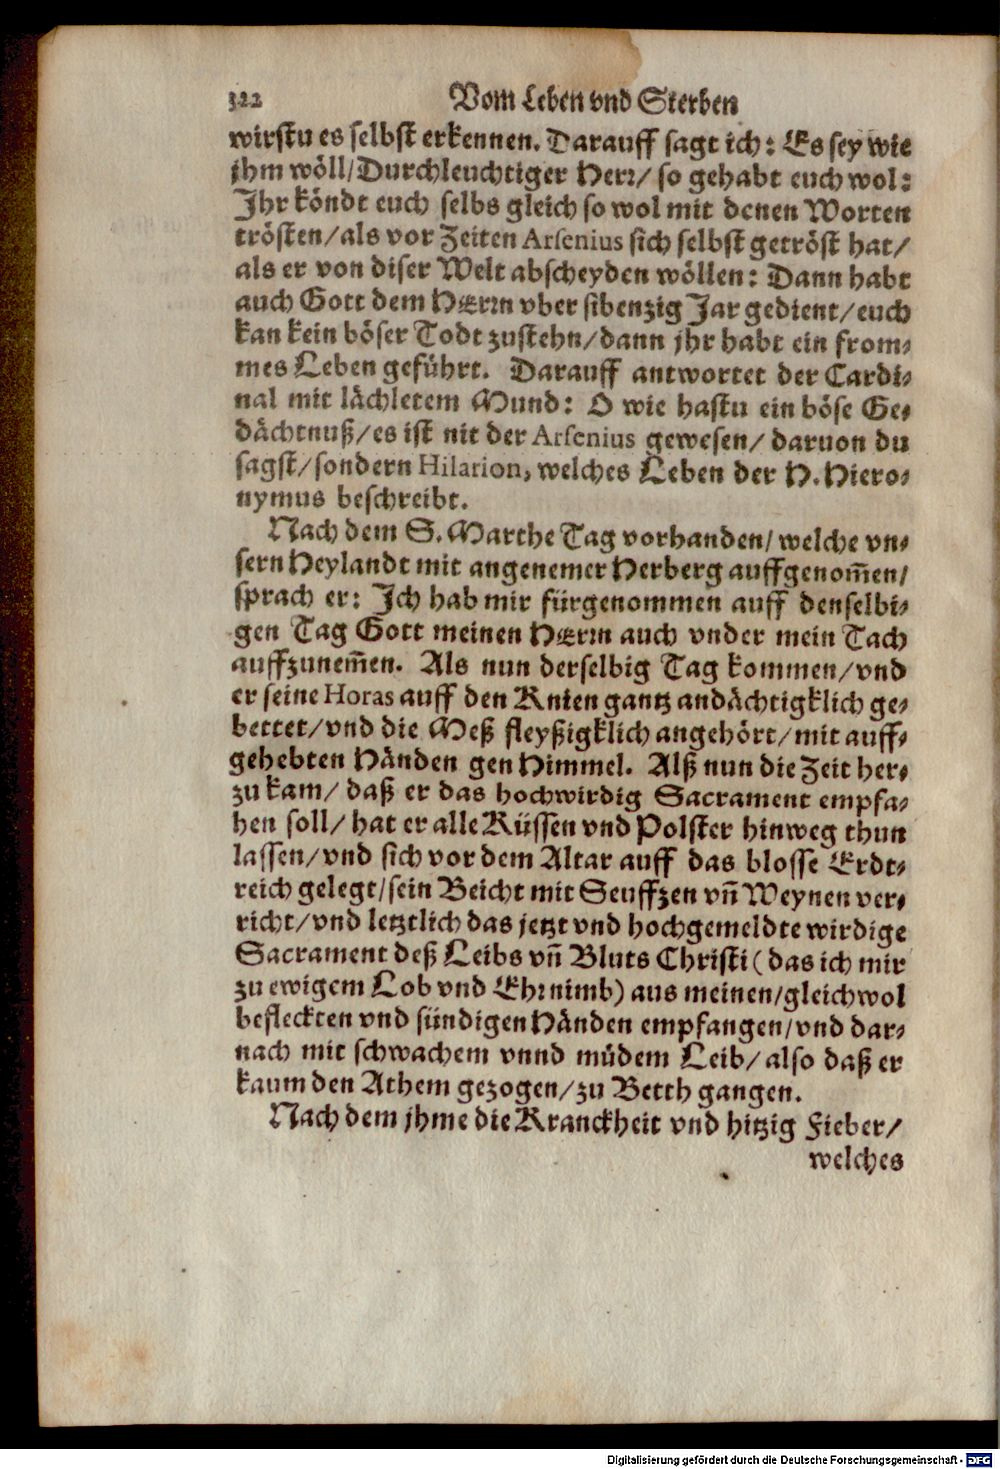 322 Vom Leben vnd Sterben
wirstu es selbst erkennen. Darauff sagt ich: Es sey wie
jhm wöll/Durchleuchtiger Herr/ so gehabt euch wol:
Ihr köndt euch selbs gleich so wol mit denen Worten
trösten/als vor Zeiten Arsenius sich selbst getröst hat/
als er von diser Welt abscheyden wöllen: Dann habt
auch Gott dem HErrn vber sibenzig Jar gedient/euch
kan kein böser Todt zustehn/dann jhr habt ein from-
mes Leben geführt. Darauff antwortet der Cardi-
nal mit lächletem Mund: O wie hastu ein böse Ge-
dächtnuß/es ist nit der Arsenius gewesen/ daruon du
sagst/sondern Hilarion, welches Leben der H. Hiero-
nymus beschreibt.
Nach dem S. Marthe Tag vorhanden/welche vn-
sern Heylandt mit angenemer Herberg auffgenom̃en/
sprach er: Ich hab mir fürgenommen auff denselbi-
gen Tag Gott meinen HErrn auch vnder mein Tach
auffzunem̃en. Als nun derselbig Tag kommen/vnd
er seine Horas auff den Knien gantz andächtigklich ge-
bettet/vnd die Meß fleyßigklich angehört/mit auff-
gehebten Händen gen Himmel. Alß nun die Zeit her-
zu kam/ daß er das hochwirdig Sacrament empfa-
hen soll/ hat er alle Küssen vnd Polster hinweg thun
lassen/vnd sich vor dem Altar auff das blosse Erdt-
reich gelegt/sein Beicht mit Seuffzen vñ Weynen ver-
richt/vnd letztlich das jetzt vnd hochgemeldte wirdige
Sacrament deß Leibs vñ Bluts Christi (das ich mir
zu ewigem Lob vnd Ehr nimb) aus meinen/gleichwol
befleckten vnd sündigen Händen empfangen/vnd dar-
nach mit schwachem vnnd müdem Leib/also daß er
kaum den Athem gezogen/zu Betth gangen.
Nach dem jhme die Kranckheit vnd hitzig Fieber/
welches
Digitalisierung gefördert durch die Deutsche Forschungsgemeinschaft - DFG